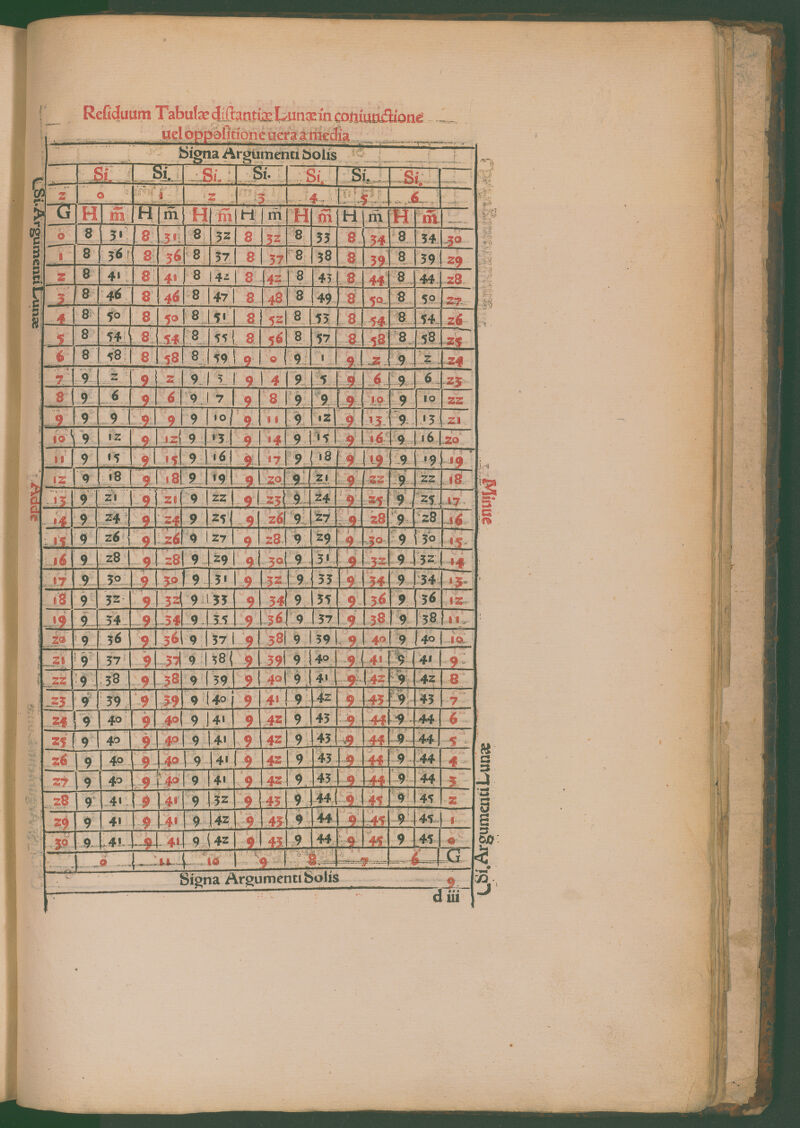 Residuum Tabulæ distantiæ Lunæ in coniunctione
uel oppositione uera a media
Signa Argumenti Solis
Si. Si. Si. Si. Si. Si. Si.
2 0 1 2 3 4 5 6
G H m̅ H m̅ H m̅ H m̅ H m̅ H m̅ H m̅
0 8 31 8 31 8 32 8 32 8 33 8 34 8 34 30
1 8 36 8 36 8 37 8 37 8 38 8 39 8 39 29
2 8 41 8 41 8 42 8 42 8 43 8 44 8 44 28
3 8 46 8 46 8 47 8 48 8 49 8 50 8 50 27
4 8 50 8 50 8 51 8 52 8 53 8 54 8 54 26
5 8 54 8 54 8 55 8 56 8 57 8 58 8 58 25
6 8 58 8 58 8 59 9 0 9 1 9 2 9 2 24
7 9 2 9 2 9 3 9 4 9 5 9 6 9 6 23
8 9 6 9 6 9 7 9 8 9 9 9 10 9 10 22
9 9 9 9 9 9 10 9 11 9 12 9 13 9 13 21
10 9 12 9 12 9 13 9 14 9 15 9 16 9 16 20
11 9 15 9 15 9 16 9 17 9 18 9 19 9 19 19
12 9 18 9 18 9 19 9 20 9 21 9 22 9 22 18
13 9 21 9 21 9 22 9 23 9 24 9 25 9 25 17
14 9 24 9 24 9 25 9 26 9 27 9 28 9 28 16
15 9 26 9 26 9 27 9 28 9 29 9 30 9 30 15
16 9 28 9 28 9 29 9 30 9 31 9 32 9 32 14
17 9 30 9 30 9 31 9 32 9 33 9 34 9 34 13
18 9 32 9 32 9 33 9 34 9 35 9 36 9 36 12
19 9 34 9 34 9 35 9 36 9 37 9 38 9 38 11
20 9 36 9 36 9 37 9 38 9 39 9 40 9 40 10
21 9 37 9 37 9 38 9 39 9 40 9 41 9 41 9
22 9 38 9 38 9 39 9 40 9 41 9 42 9 42 8
23 9 39 9 39 9 40 9 41 9 42 9 43 9 43 7
24 9 40 9 40 9 41 9 42 9 43 9 44 9 44 6
25 9 40 9 40 9 41 9 42 9 43 9 44 9 44 5
26 9 40 9 40 9 41 9 42 9 43 9 44 9 44 4
27 9 40 9 40 9 41 9 42 9 43 9 44 9 44 3
28 9 41 9 41 9 32 9 43 9 44 9 45 9 45 2
29 9 41 9 41 9 42 9 43 9 44 9 45 9 45 1
30 9 41 9 41 9 42 9 43 9 44 9 45 9 45 0
0 11 10 9 8 7 6 G
Signa Argumenti Solis 9
d iii
Si. Argumenti Lunæ
Adde
Minue
Si. Argumenti Lunæ